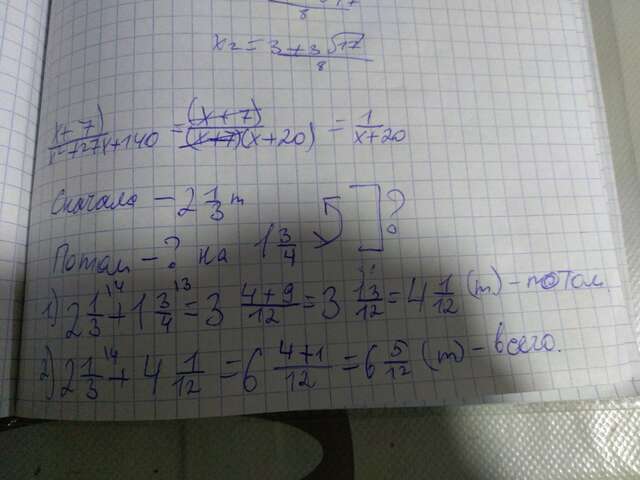 8
x₂ = 3+3√17/8
(x+7)/x²+27x+140 = (x+7)/(x+7)(x+20) = 1/x+20
Сначала – 2 1/3 т
Потом – ? на 1 3/4 ?
1) 2 1/3 \4 + 1 3/4 \3 = 3 4+9/12 = 3 13/12 = 4 1/12 (т) – потом
2) 2 1/3 \4 + 4 1/12 = 6 4+1/12 = 6 5/12 (т) – всего.